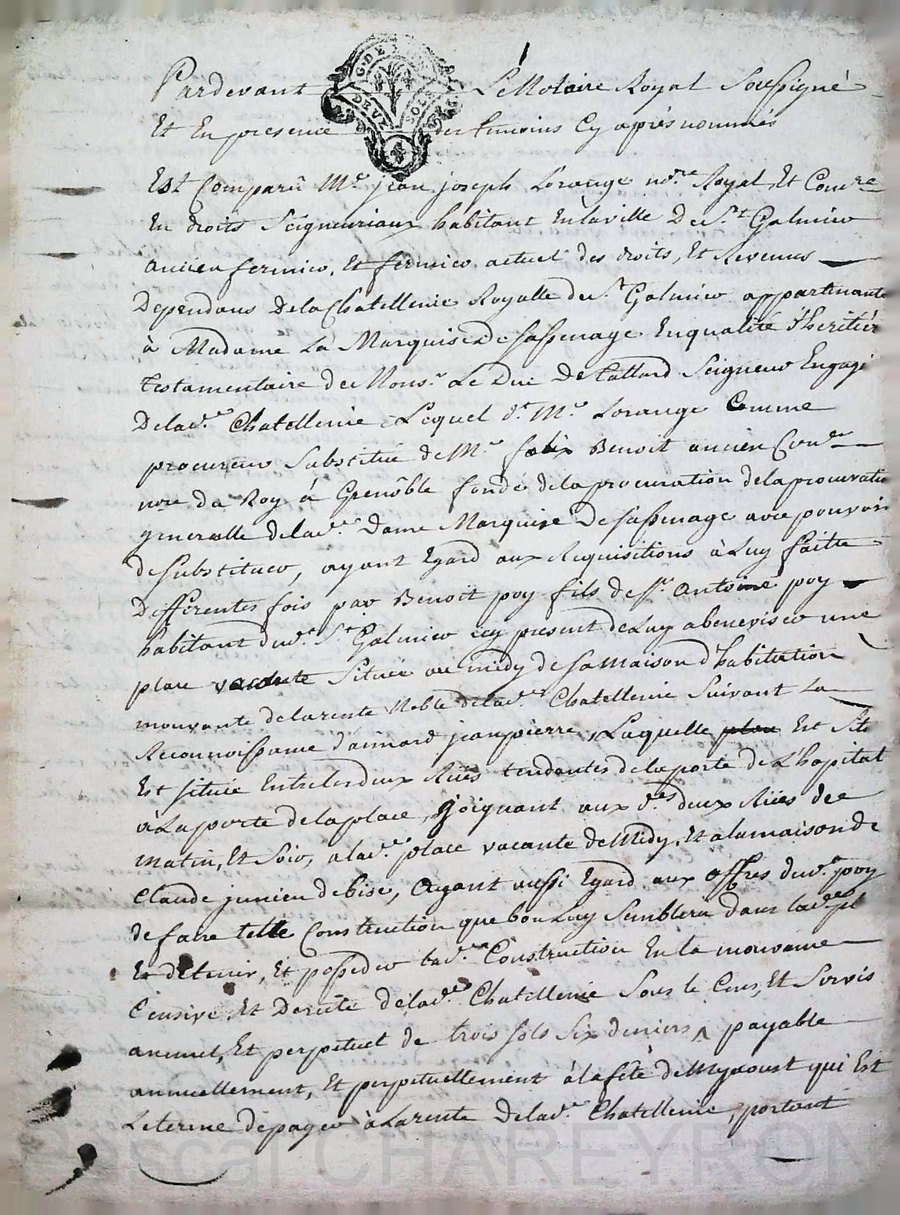 Pardevant Le Notaire Royal Soussigné
Et En presence des temoins Cy après nommés
Est Comparû Me. jean joseph Lorange nore. Royal, Et Comre
En droits Seigneuriaux habitant En la ville De St Galmier
ancien fermier, Et fermier actuel des droits, Et Revenus
Dependans De la Chatellenie Royalle de St. Galmier appartinante
à Madame La Marquise De Sassenage En qualité d'heritière
testamentaire de Monsr. Le Duc De tallard Seigneur Engagi
De lade. Chatellenie Lequel dt. Me. Lorange Comme
procureur Substitué de Me. felix Benoit ancien
du Roy à Grenôble fondé de la procuration de la procuration
generalle de lade. Dame Marquise De Sassenage avec pouvoir
de Substituer, ayant Egard aux Requisitions à Luy faitte
Differentes fois par Benoit poy fils de Sr. Antoine poy
habitant dudt. St Galmier icy present de Luy abeneviser une
place vacante Située au midy de Sa maison d'habitation
mouvante de la rente Noble de lade. Chatellenie Suivant La
Reconnoissance d'aimard jean pierre, Laquelle place Est
Est Située Entre les deux Rües tendantes de la porte de L'hopital
a La porte de la place, joignant aux des. deux Rües de
matin, Et Soir, a lade. place vacante de Midy, Et a la maison de
Claude junien de bise, Ayant aussi Egard aux offres dudt. poy
de faire telle Construction que bon Luy Semblera dans lade. pl
Et de tenir, Et posseder lade. Construction En la mouvance
Censive, Et Directe de lade. Chatellenie Sous le Cens, Et Servis
annuel, Et perpetuel de trois sols Six deniers payable
annuellement, Et perpetuellement à la fête de Myaoust qui Est
Le terme de payer à La rente de lade. Chatellenie, portant
Pascal CHAREYRON